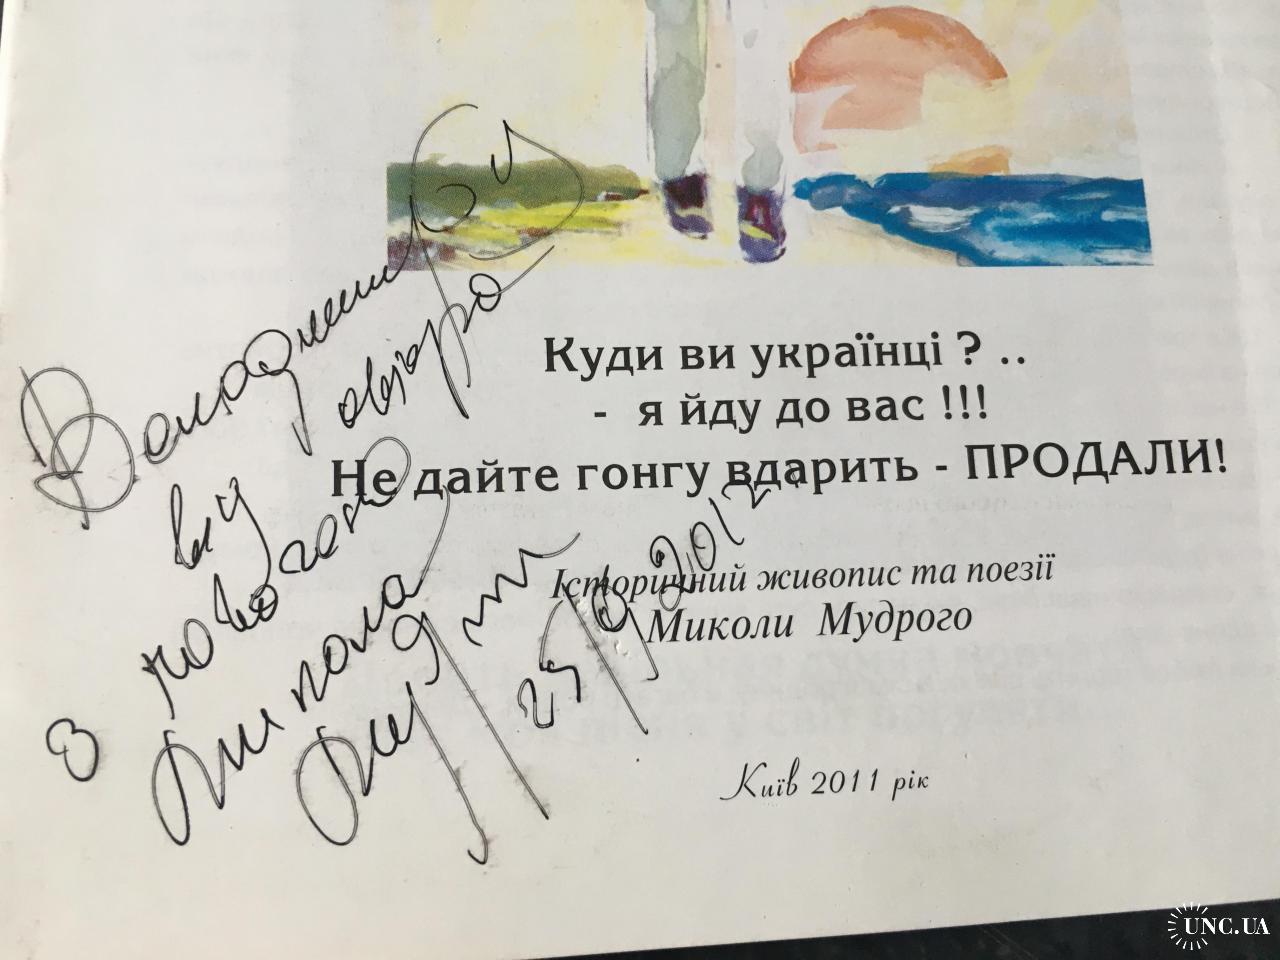 Куди ви українці ? ..
- я йду до вас !!!
Не дайте гонгу вдарить - ПРОДАЛИ!
Історичний живопис та поезії
Миколи Мудрого
Київ 2011 рік
Володимиру
від
з повагою
Микола
Мудрий
UNC.UA